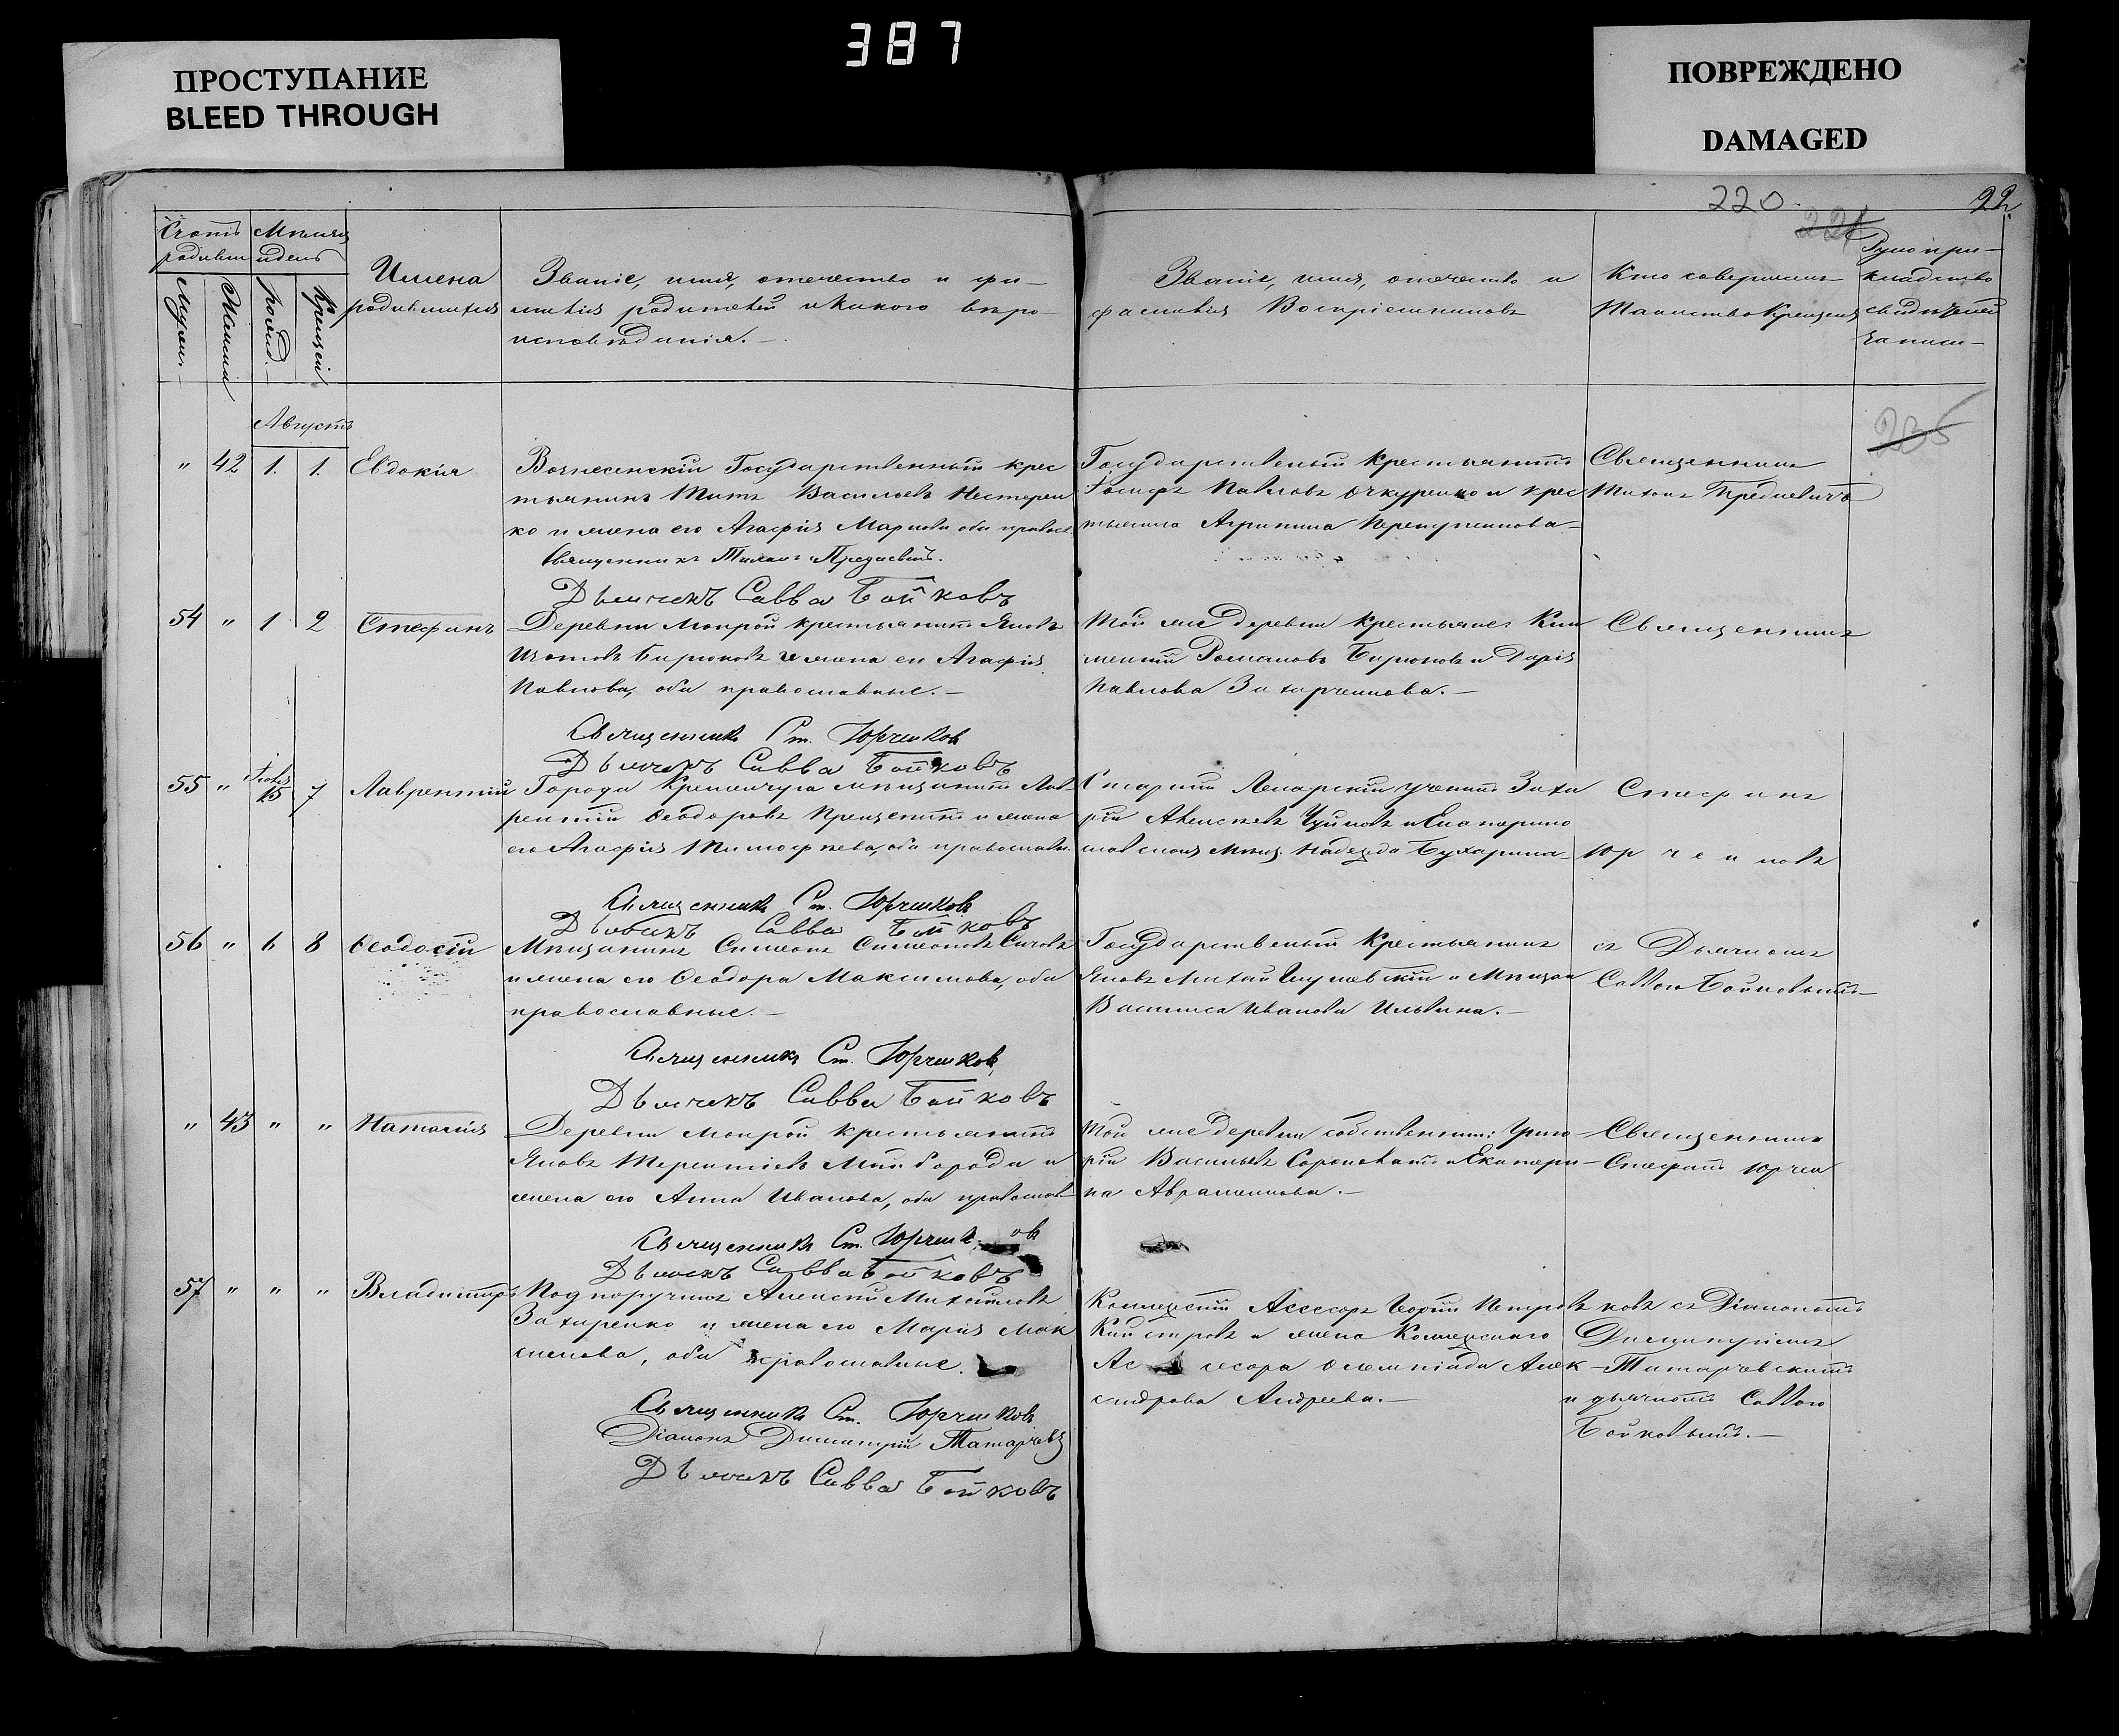 387
ПРОСТУПАНИЕ
BLEED THROUGH
ПОВРЕЖДЕНО
DAMAGED
220.
22
Счотъ родивш
Мужеск.
Женска
Мѣсяцъ и день
рожд.
крещенія
Имена
родившихся
Званіе, имя, отечество и фа-
милія родителей и какого вѣро-
исповѣданія.
Званіе, имя, отечество и
фамилія Воспріемниковъ
Кто совершилъ
Таинство Крещенія
Рукопри-
кладство
свидѣтелей
записи
235
Августъ
" 42 1. 1. Евдокія
Вознесенскій Государственный крес
тьянинъ Титъ Васильевъ Нестерен
ко и жена его Агафія Маркова оба правос.
Священникъ Тихонъ
Дьячекъ Савва Бойковъ
Государственый крестьянинъ
Іосифъ Павловъ Очкуренко и крес
тьянка Агрипина
Священникъ
Тихонъ
54 " 1 2 Стефанъ
Деревни Мокрой крестьянинъ Яковъ
Изотовъ Бирюковъ и жена его Агафія
Павлова, оба православные.
Священникъ Ст. Юрченков
Дьячекъ Савва Бойковъ
Той же деревни крестьяне: Кли
ментій Романовъ Бирюковъ и Дарія
Павлова Захарченкова.
Священникъ
55 " Іюля 15 7 Лаврентій
Города Кременчуга мѣщанинъ Лав
рентій Ѳеодоровъ и жена
его Агафія Тимофѣева, оба православн.
Священникъ Ст. Юрченковъ
Дьячекъ Савва Бойковъ
Старшій Лекарскій ученикъ Заха
рій Алексѣевъ и Екатерино
славская мѣщ. Надежда Бухарина
Стефанъ
Юрченковъ
56 " 6 8 Ѳеодосій
Мѣщанинъ Симеонъ Симеоновъ Сычовъ
и жена его Ѳеодора Максимова, оба
православные.
Священникъ Ст. Юрченковъ
Дьячекъ Савва Бойковъ
Государственый Крестьянинъ
Яковъ и Мѣщан
Василиса Иванова Ильина.
съ Дьячкомъ
Саввою Бойковымъ
" 43 " " Наталія
Деревни Мокрой крестьянинъ
Яковъ Терентіевъ Майборода и
жена его Анна Иванова, оба православ
Священникъ Ст. Юрченковъ
Дьячекъ Савва Бойковъ
Той же деревни собственник: Григо-
рій Васильевъ и Екатери-
на Авраменкова.
Священникъ
Стефанъ Юрчен
57 " " " Владиміръ
Подпоручикъ Алексѣй Михайловъ
Захаренко и жена его Марія Мак
симова, оба православные.
Священникъ Ст. Юрченковъ
Діаконъ Димитрій Татарчевс
Дьячекъ Савва Бойковъ
Коллежскій Асессоръ Георгій Петровъ
и жена Коллежскаго
Ас сесора Олемпіада Алек
сандрова Андреева.
ковъ съ Діакономъ
Димитріемъ
Татарчевскимъ
и дьячкомъ Саввою
Бойковымъ.